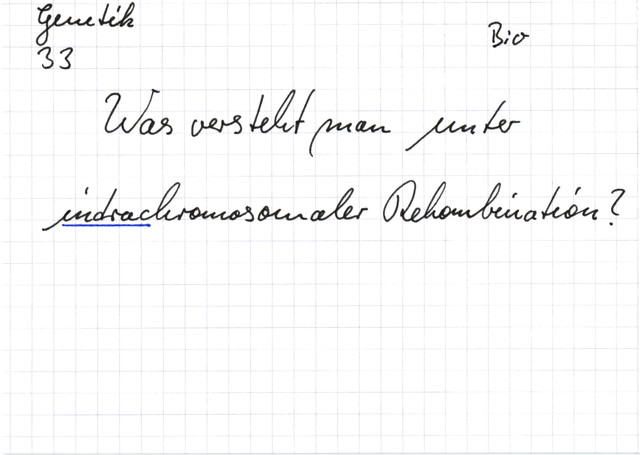 Genetik
Bio
33
Was versteht man unter
indrachromosomaler Rekombination?